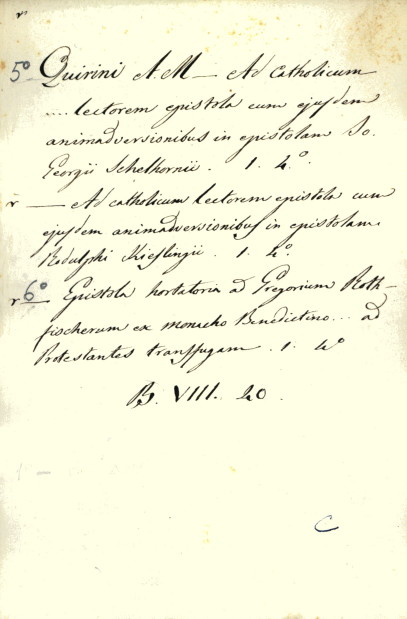 r
5º Quirini A. M — Ad Catholicum
.... lectorem epistola cum ejusdem
animadversionibus in epistolam Jo.
Georgii Schelhornii. 1. 4º.
r — Ad catholicum lectorem epistola cum
ejusdem animadversionibus in epistolam
Rodulphi Kieslingii. 1. 4º.
r 6º Epistola hortatoria ad Gregorium Roth-
fischerum ex monacho Benedictino... ad
Protestantes transfugam. 1. 4º
B. VIII. 20.
C